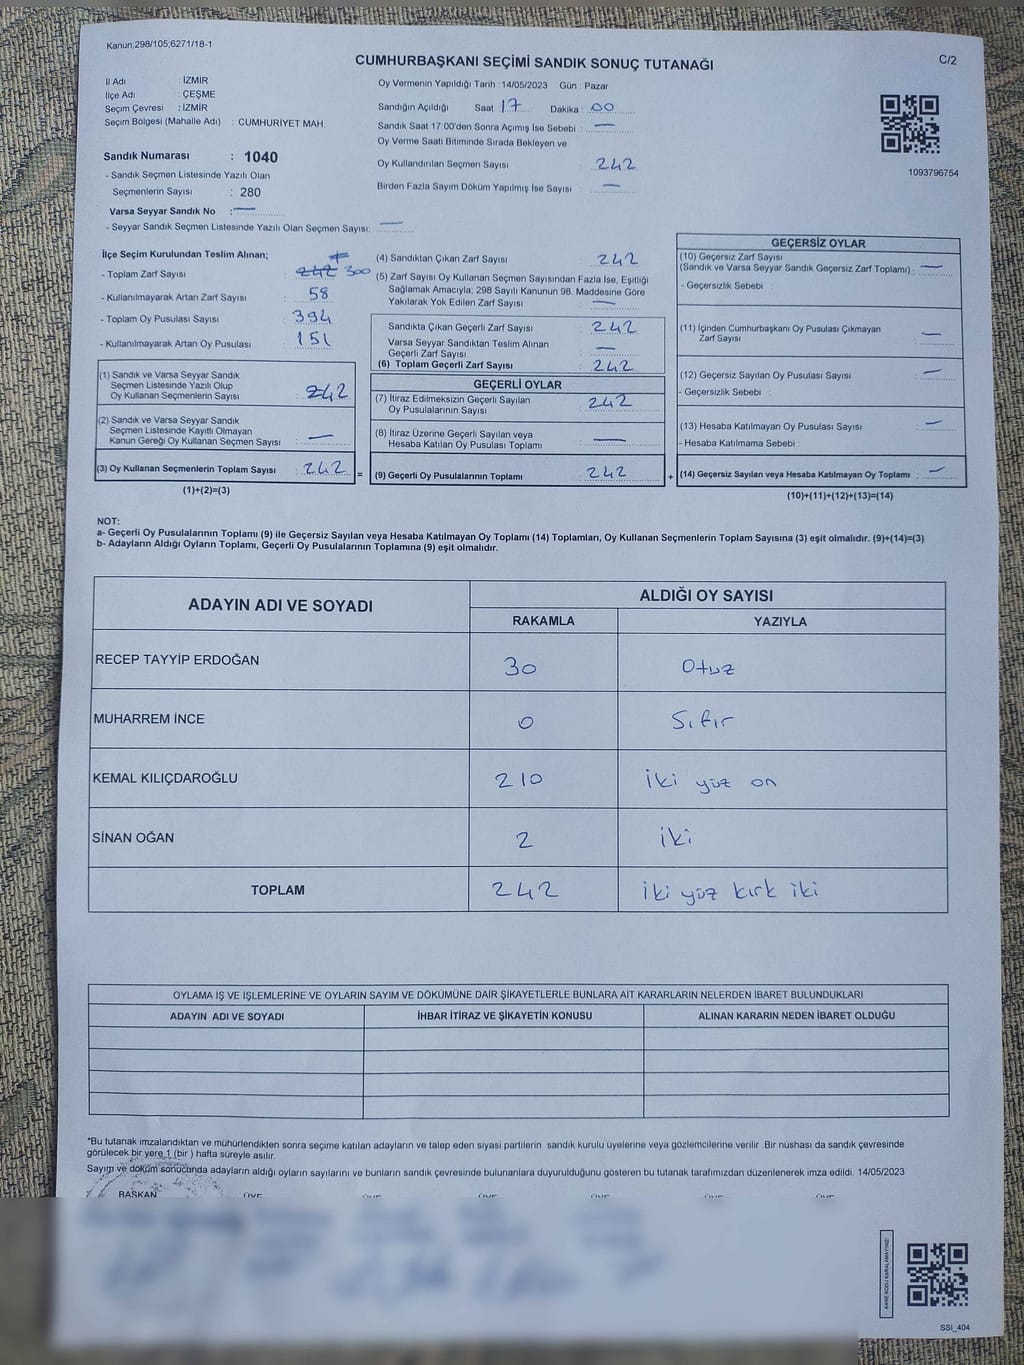 Kanun;298/105;6271/18-1
CUMHURBAŞKANI SEÇİMİ SANDIK SONUÇ TUTANAĞI
C/2
İl Adı : İZMİR
İlçe Adı : ÇEŞME
Seçim Çevresi : İZMİR
Seçim Bölgesi (Mahalle Adı) : CUMHURİYET MAH.
Sandık Numarası : 1040
- Sandık Seçmen Listesinde Yazılı Olan
Seçmenlerin Sayısı : 280
Varsa Seyyar Sandık No : —
- Seyyar Sandık Seçmen Listesinde Yazılı Olan Seçmen Sayısı: —
Oy Vermenin Yapıldığı Tarih :14/05/2023 Gün : Pazar
Sandığın Açıldığı Saat 17 Dakika : 00
Sandık Saat 17:00'den Sonra Açımış İse Sebebi : —
Oy Verme Saati Bitiminde Sırada Bekleyen ve
Oy Kullandırılan Seçmen Sayısı 242
Birden Fazla Sayım Döküm Yapılmış İse Sayısı : —
1093796754
İlçe Seçim Kurulundan Teslim Alınan;
- Toplam Zarf Sayısı : 242 300
- Kullanılmayarak Artan Zarf Sayısı : 58
- Toplam Oy Pusulası Sayısı : 394
- Kullanılmayarak Artan Oy Pusulası : 151
(1) Sandık ve Varsa Seyyar Sandık
Seçmen Listesinde Yazılı Olup
Oy Kullanan Seçmenlerin Sayısı : 242
(2) Sandık ve Varsa Seyyar Sandık
Seçmen Listesinde Kayıtlı Olmayan
Kanun Gereği Oy Kullanan Seçmen Sayısı : —
(3) Oy Kullanan Seçmenlerin Toplam Sayısı : 242 =
(1)+(2)=(3)
(4) Sandıktan Çıkan Zarf Sayısı : 242
(5) Zarf Sayısı Oy Kullanan Seçmen Sayısından Fazla İse, Eşitliği
Sağlamak Amacıyla; 298 Sayılı Kanunun 98. Maddesine Göre
Yakılarak Yok Edilen Zarf Sayısı : —
Sandıkta Çıkan Geçerli Zarf Sayısı : 242
Varsa Seyyar Sandıktan Teslim Alınan
Geçerli Zarf Sayısı : —
(6) Toplam Geçerli Zarf Sayısı : 242
GEÇERLİ OYLAR
(7) İtiraz Edilmeksizin Geçerli Sayılan
Oy Pusulalarının Sayısı : 242
(8) İtiraz Üzerine Geçerli Sayılan veya
Hesaba Katılan Oy Pusulası Toplamı : —
(9) Geçerli Oy Pusulalarının Toplamı : 242 +
GEÇERSİZ OYLAR
(10) Geçersiz Zarf Sayısı
(Sandık ve Varsa Seyyar Sandık Geçersiz Zarf Toplamı) : —
- Geçersizlik Sebebi :
(11) İçinden Cumhurbaşkanı Oy Pusulası Çıkmayan
Zarf Sayısı : —
(12) Geçersiz Sayılan Oy Pusulası Sayısı : —
- Geçersizlik Sebebi :
(13) Hesaba Katılmayan Oy Pusulası Sayısı : —
- Hesaba Katılmama Sebebi :
(14) Geçersiz Sayılan veya Hesaba Katılmayan Oy Toplamı : —
(10)+(11)+(12)+(13)=(14)
NOT:
a- Geçerli Oy Pusulalarının Toplamı (9) ile Geçersiz Sayılan veya Hesaba Katılmayan Oy Toplamı (14) Toplamları, Oy Kullanan Seçmenlerin Toplam Sayısına (3) eşit olmalıdır. (9)+(14)=(3)
b- Adayların Aldığı Oyların Toplamı, Geçerli Oy Pusulalarının Toplamına (9) eşit olmalıdır.
ADAYIN ADI VE SOYADI ALDIĞI OY SAYISI
RAKAMLA YAZIYLA
RECEP TAYYİP ERDOĞAN 30 Otuz
MUHARREM İNCE 0 Sıfır
KEMAL KILIÇDAROĞLU 210 İki yüz on
SİNAN OĞAN 2 İki
TOPLAM 242 İki yüz kırk iki
OYLAMA İŞ VE İŞLEMLERİNE VE OYLARIN SAYIM VE DÖKÜMÜNE DAİR ŞİKAYETLERLE BUNLARA AİT KARARLARIN NELERDEN İBARET BULUNDUKLARI
ADAYIN ADI VE SOYADI İHBAR İTİRAZ VE ŞİKAYETİN KONUSU ALINAN KARARIN NEDEN İBARET OLDUĞU
*Bu tutanak imzalandıktan ve mühürlendikten sonra seçime katılan adayların ve talep eden siyasi partilerin sandık kurulu üyelerine veya gözlemcilerine verilir .Bir nüshası da sandık çevresinde
görülecek bir yere 1 (bir ) hafta süreyle asılır.
Sayım ve döküm sonucunda adayların aldığı oyların sayılarını ve bunların sandık çevresinde bulunanlara duyurulduğunu gösteren bu tutanak tarafımızdan düzenlenerek imza edildi. 14/05/2023
BAŞKAN ÜYE ÜYE ÜYE ÜYE ÜYE ÜYE
KARE KODU KARALAMAYINIZ!
SSI_404